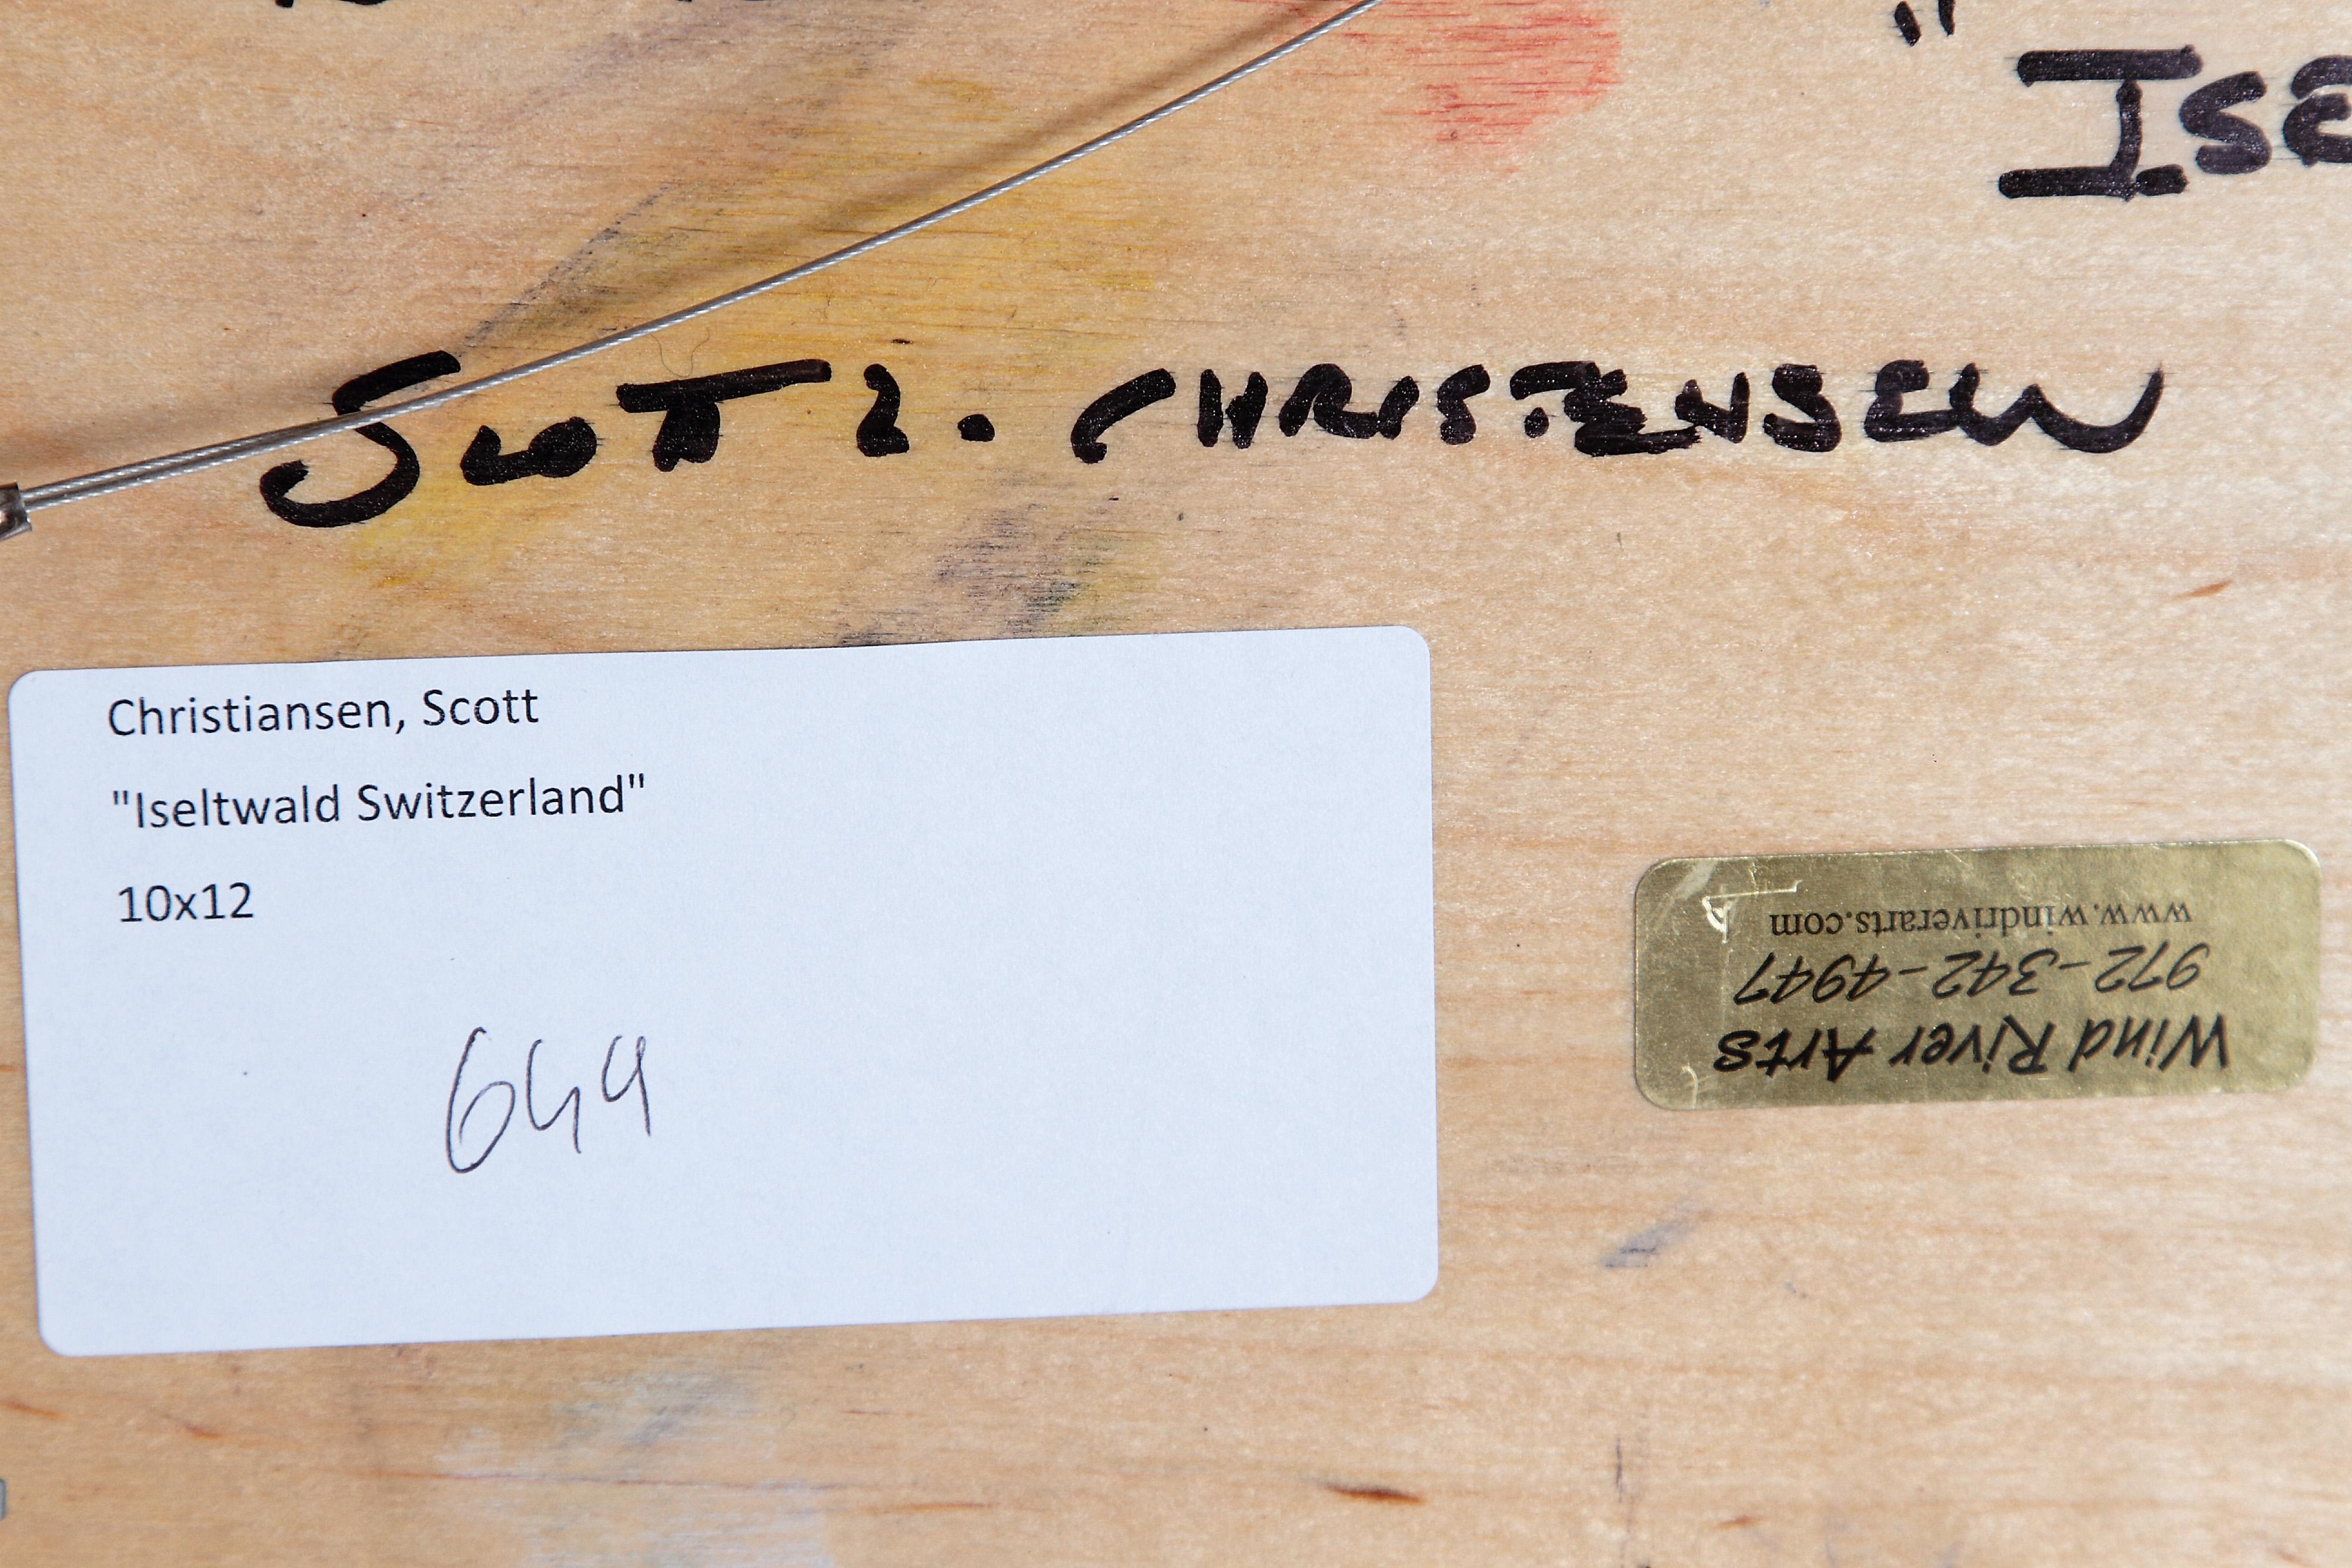 " ISE
SCOTT L. CHRISTENSEN
Christiansen, Scott
"Iseltwald Switzerland"
10x12
649
Wind River Arts
972-342-4947
www.windriverarts.com